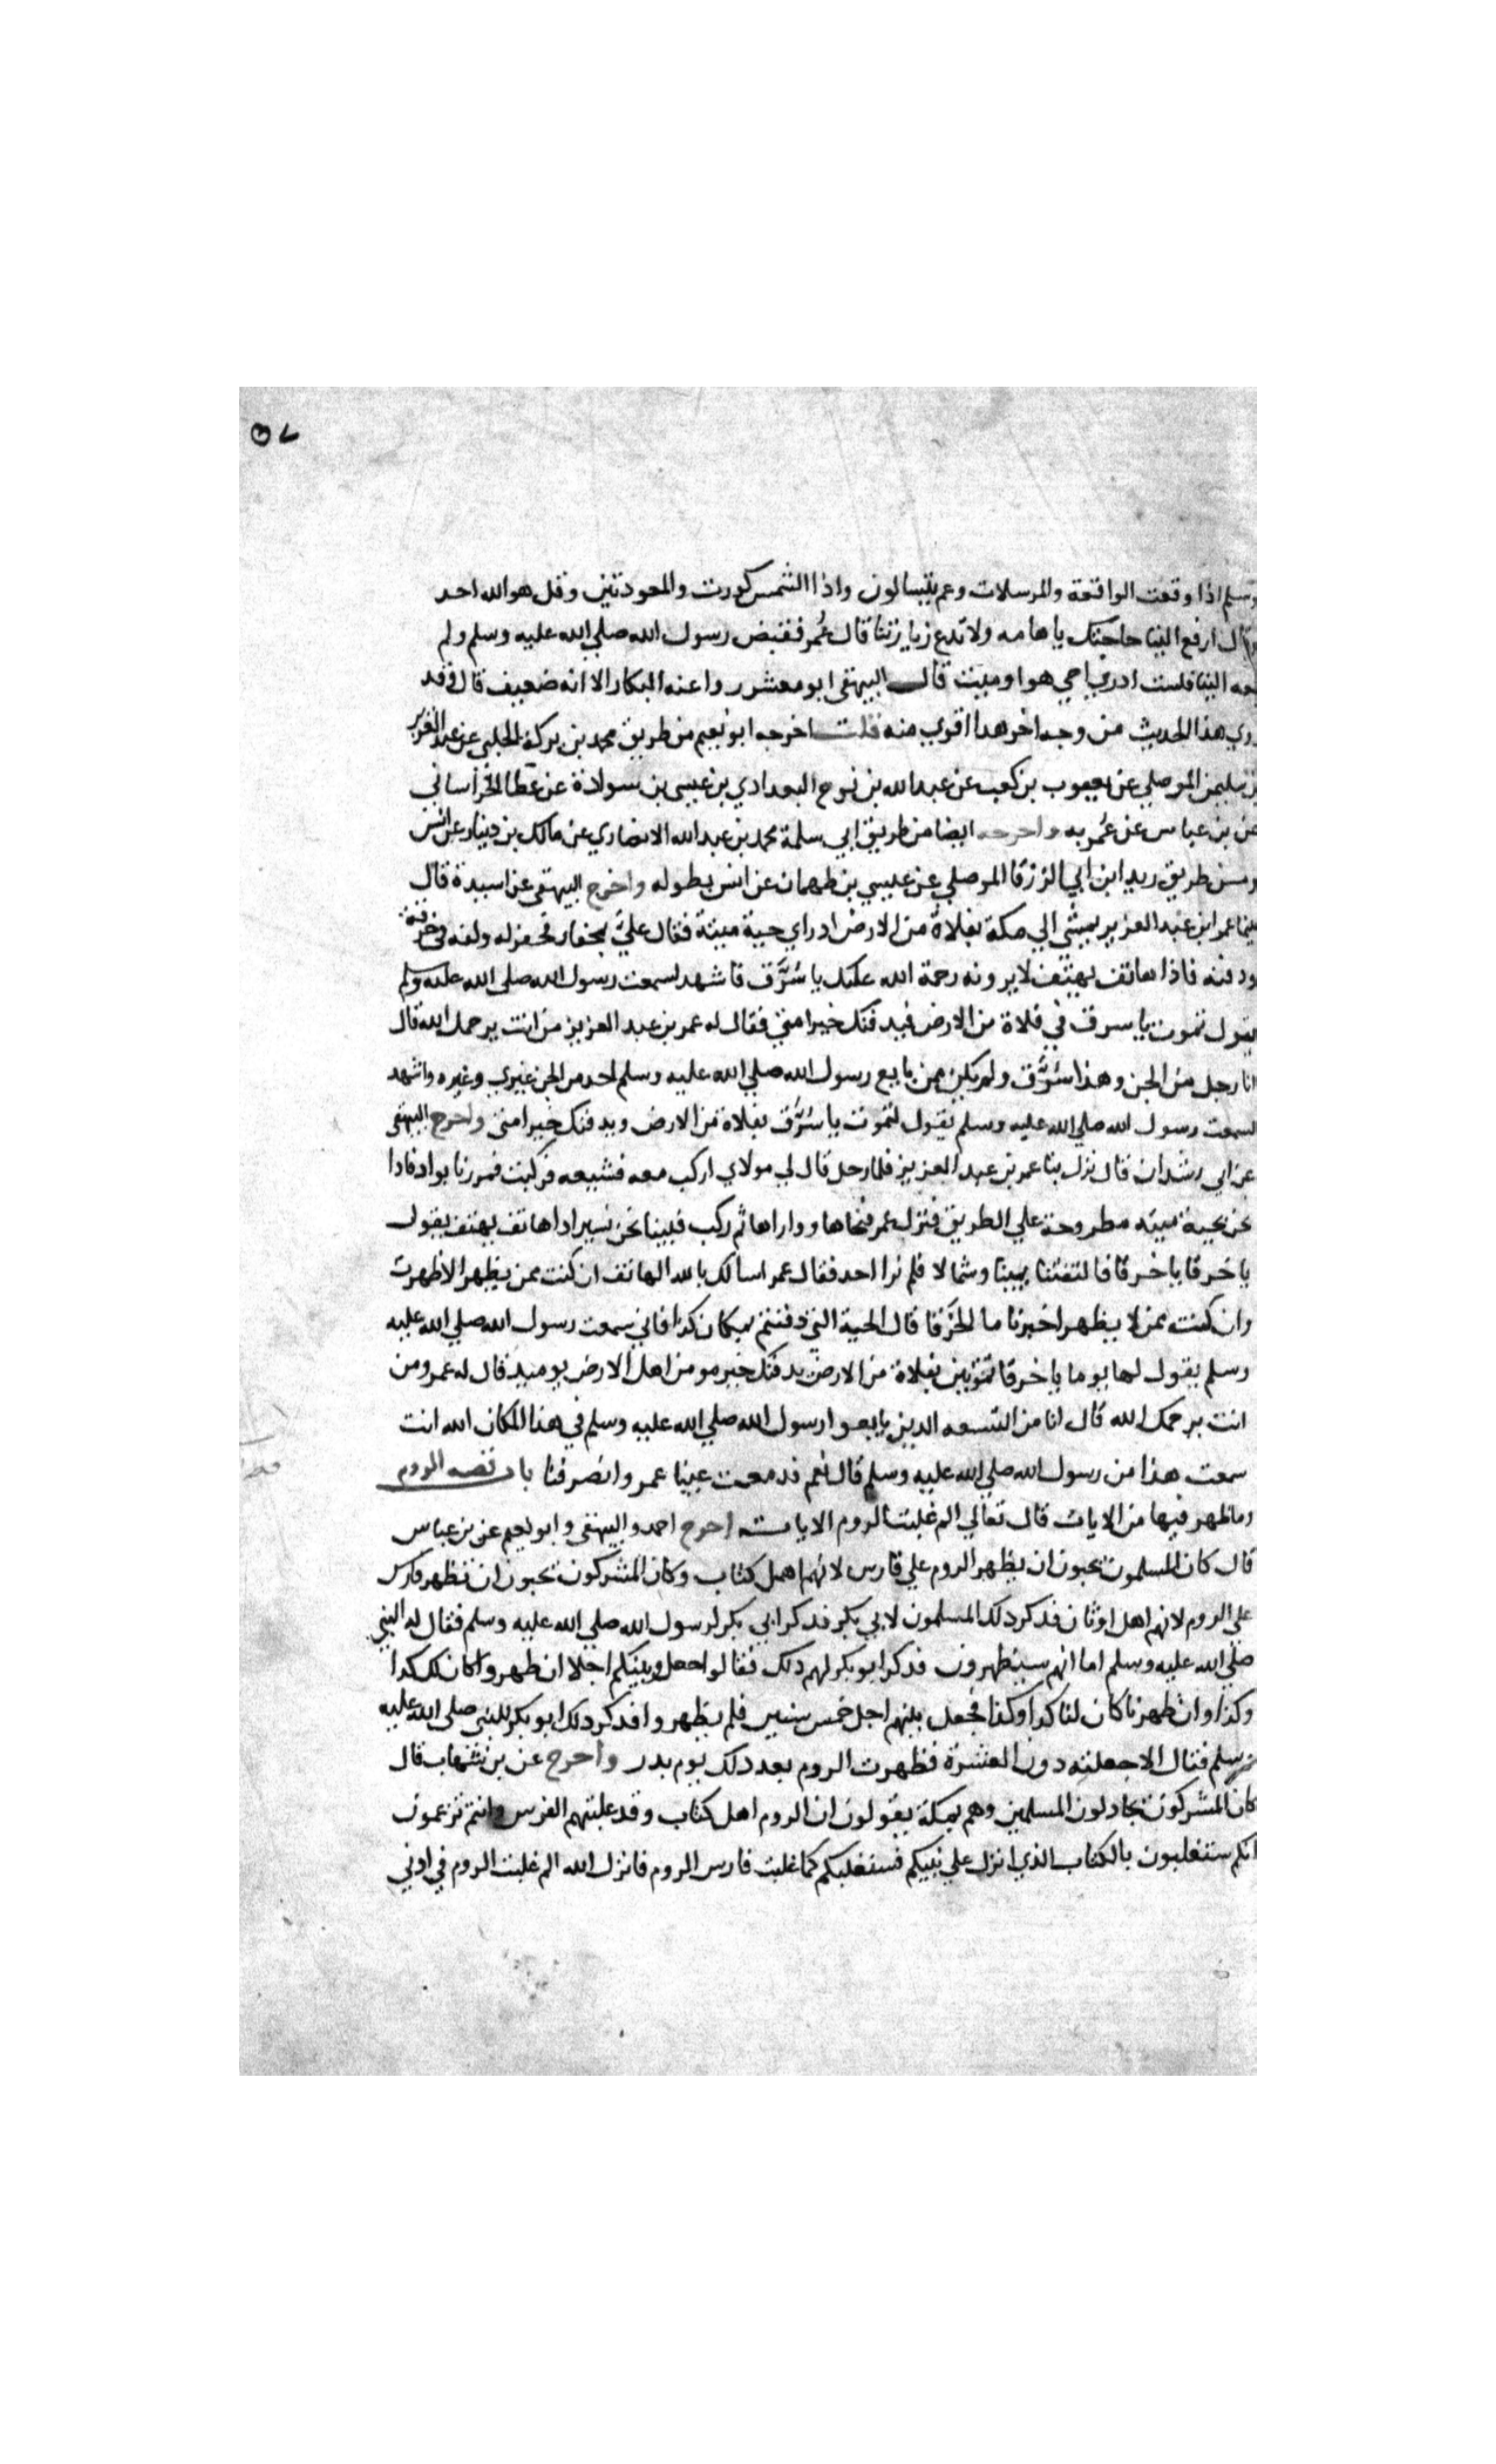 ٥٧
وسلم اذا وقعت الواقعة والمرسلات وعم يتسالون واذا الشمس كورت والمعوذتين وقل هو الله احد
وقال ارفع الينا حاجتك يا هامه ولا تدع زيارتنا قال عُمر فقبض رسول الله صلي الله عليه وسلم ولم
ينعه الينا فلست ادري احي هو او ميت قال البيهقي ابو معشر روا عنه الكبار الا انه ضعيف قال وقد
روي هذا الحديث من وجه اخر هدا اقوي منه قلت اخرجه ابو نعيم من طريق محمد بن بركة الحلبي عن عبد العزيز
بن سليمن الموصلي عن يعقوب بن كعب عن عبد الله بن نوح البغدادي بن عيسى بن سولادة عن عطا الخراساني
عن بن عباس عن عُمر به واخرجه ايضا من طريق ابي سلمة محمد بن عبد الله الانصاري عن مالك بن دينار عن انس
ومن طريق زيد ابن ابي الزرقا الموصلي عن عيسي بن طهمان عن انس بطوله واخرج البيهقي عن اسيدة قال
بينما عمر ابن عبد العزيز يمشي الي مكة بفلاة من الارض اد راي حية ميتة فقال عليَّ بمحفار فحفر له ولفه في خرقة
ودفنه فاذا هاتف يهتف لا يرونه رحمة الله عليك يا سُرَّق فاشهد لسمعت رسول الله صلى الله عليه وسلم
يقول تموت يا سرق في فلاة من الارض فيدفنك خير امتي فقال له عمر بن عبد العزيز من انت يرحمك الله قال
انا رجل من الجن وهذا سُرَّق ولم يكن ممن بايع رسول الله صلي الله عليه وسلم احد من الجن غيري وغيره واشهد
لسمعت رسول الله صلي الله عليه وسلم يقول لتموت يا سُرَّق بفلاة من الارض ويدفنك خير امتي واخرج البيهقي
عن ابي رشدان قال نزل بنا عمر بن عبد العزيز فلما رحل قال لي مولاي اركب معه فشيعه فركبت فمررنا بواد فادا
نحن بحية ميته مطروحة علي الطريق فنزل عمر فنحاها وواراها ثم ركب فبينا نحن نسير ادا هاتف يهتف يقول
يا خرقا يا خرقا فالتفتنا يمينا وشمالا فلم نرا احد فقال عمر اسالك بالله ايها الهاتف ان كنت ممن يظهر الا ظهرت
وان كنت ممن لا يظهر اخبرنا ما الخرقا قال الحية التي دفنتم بمكان كدا فاني سمعت رسول الله صلي الله عليه
وسلم يقول لها يوما يا خرقا تموتين بفلاة من الارض يدفنك خير مومن اهل الارض يوميد قال له عمر ومن
انت يرحمك الله قال انا من التسعه الدين بايعوا رسول الله صلي الله عليه وسلم في هذا المكان الله انت
سمعت هذا من رسول الله صلي الله عليه وسلم قال نعم فدمعت عينا عمر وانصرفنا باب قصه الروم
وما ظهر فيها من الايات قال تعالي الم غلبت الروم الايات اخرج احمد والبيهقي وابو نعيم عن بن عباس
قال كان المسلمون يحبون ان يظهر الروم علي فارس لانهم اهل كتاب وكان المشركون يحبون ان تظهر فارس
علي الروم لانهم اهل اوثان فدكر دلك المسلمون لابي بكر فدكر ابي بكر لرسول الله صلي الله عليه وسلم فقال له النبي
صلي الله عليه وسلم اما انهم سيظهرون فدكر ابو بكر لهم دلك فقالوا اجعل وبينكم اجلا ان ظهروا كان لك كدا
وكذا وان ظهرنا كان لنا كدا وكذا فجعل بينهم اجل خمس سنين فلم يظهروا فدكر دلك ابو بكر للنبي صلي الله عليه
وسلم فقال الا جعلته دون العشرة فظهرت الروم بعد دلك يوم بدر واخرج عن بن شهاب قال
كان المشركون يجادلون المسلمين وهم بمكة يقولون ان الروم اهل كتاب وقد غلبتهم الفرس وانتم تزعمون
انكم ستغلبون بالكتاب الذي انزل علي نبيكم فسنغلبكم كما غلبت فارس الروم فانزل الله الم غلبت الروم في ادني